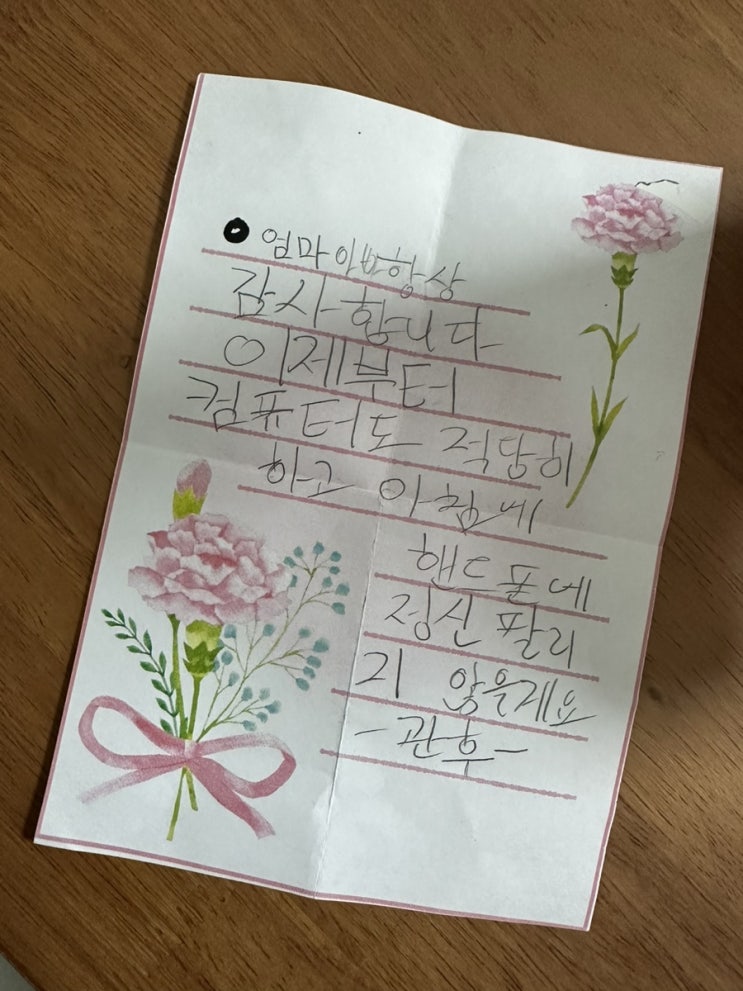 엄마 아빠 항상
감사합니다
이제부터
컴퓨터도 적당히
하고 아침에
핸드폰에
정신 팔리
지 않을게요
-관후-